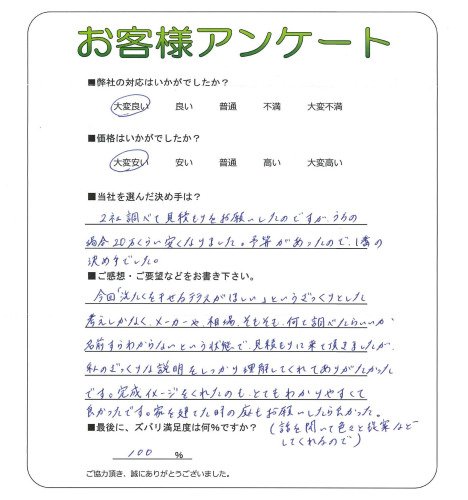 お客様アンケート
■弊社の対応はいかがでしたか？
大変良い 良い 普通 不満 大変不満
■価格はいかがでしたか？
大変安い 安い 普通 高い 大変高い
■当社を選んだ決め手は？
2社調べて見積もりをお願いしたのですが、うちの
場合20万くらい安くなりました。予算があったので、1番の
決め手でした。
■ご感想・ご要望などをお書き下さい。
今回「洗たくをほせるテラスがほしい」というざっくりとした
考えしかなく、メーカーや、相場、そもそも、何て調べたらいいか
名前すらわからないという状態で、見積もりに来て頂きましたが、
私のざっくりな説明をしっかり理解してくれてありがたかった
です。完成イメージをくれたのも、とてもわかりやすくて
良かったです。家を建てた時の庭もお願いしたら良かった。
■最後に、ズバリ満足度は何%ですか？ (話を聞いて色々と提案など
してくれるので)
100 %
ご協力頂き、誠にありがとうございました。